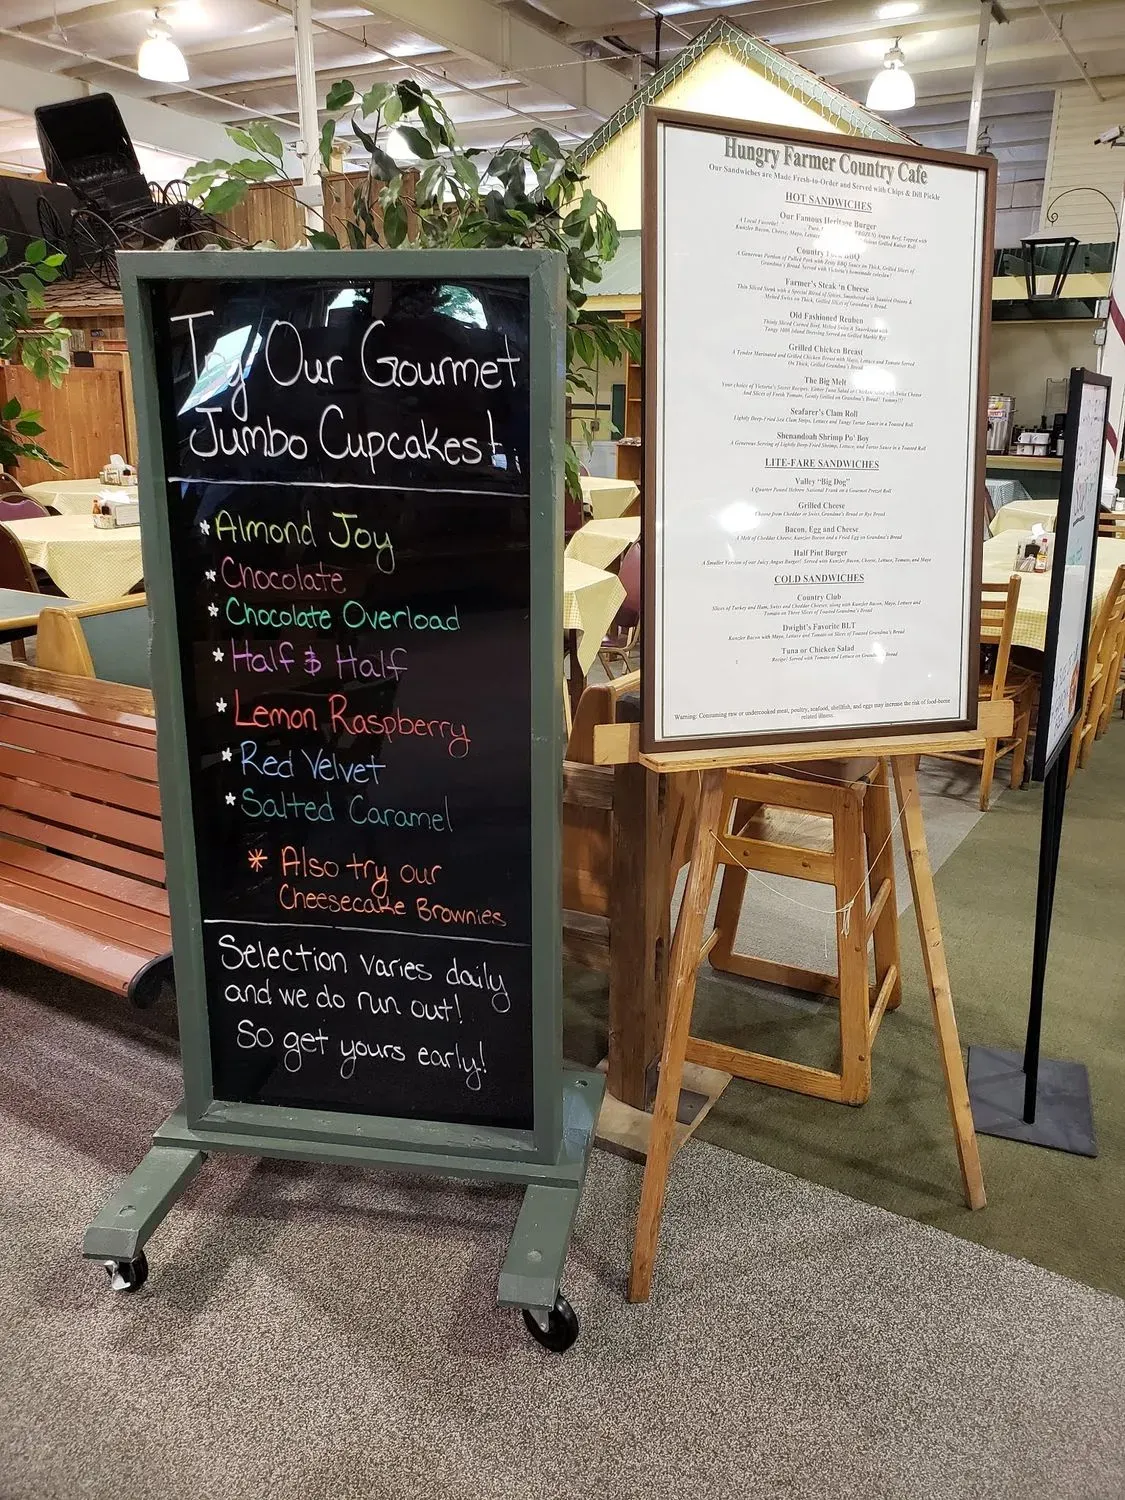 Try Our Gourmet
Jumbo Cupcakes!
* Almond Joy
* Chocolate
* Chocolate Overload
* Half & Half
* Lemon Raspberry
* Red Velvet
* Salted Caramel
* Also try our
Cheesecake Brownies
Selection varies daily
and we do run out!
So get yours early!
Hungry Farmer Country Cafe
Our Sandwiches are Made Fresh-to-Order and Served with Chips & Dill Pickle
HOT SANDWICHES
Our Famous Heritage Burger
A Local Favorite! Pure, Angus Beef, Topped with
Kunzler Bacon, Cheese, Mayo, Lettuce Kaiser Roll
Country BBQ
A Generous Portion of Pulled Pork with Zesty BBQ Sauce on Thick, Grilled Slices of
Grandma's Bread Served with Victoria's homemade coleslaw!
Farmer's Steak 'n Cheese
Thin Sliced Steak with a Special Blend of Spices, Smothered with Sautéed Onions &
Melted Swiss on Thick, Grilled Slices of Grandma's Bread.
Old Fashioned Reuben
Thinly Sliced Corned Beef, Melted Swiss & Sauerkraut with
Tangy 1000 Island Dressing Served on Grilled Marble Rye
Grilled Chicken Breast
A Tender Marinated and Grilled Chicken Breast with Mayo, Lettuce and Tomato Served
On Thick, Grilled Grandma's Bread
The Big Melt
Your choice of Victoria's Secret Recipes: Either Tuna Salad or Chicken Salad with Swiss Cheese
And Slices of Fresh Tomato, Gently Grilled on Grandma's Bread! Yummy!!!
Seafarer's Clam Roll
Lightly Deep-Fried Sea Clam Strips, Lettuce and Tangy Tartar Sauce in a Toasted Roll
Shenandoah Shrimp Po' Boy
A Generous Serving of Lightly Deep-Fried Shrimp, Lettuce, and Tartar Sauce in a Toasted Roll
LITE-FARE SANDWICHES
Valley "Big Dog"
A Quarter Pound Hebrew National Frank on a Gourmet Pretzel Roll
Grilled Cheese
Choose from Cheddar or Swiss, Grandma's Bread or Rye Bread
Bacon, Egg and Cheese
A Melt of Cheddar Cheese, Kunzler Bacon and a Fried Egg on Grandma's Bread
Half Pint Burger
A Smaller Version of our Juicy Angus Burger! Served with Kunzler Bacon, Cheese, Lettuce, Tomato, and Mayo
COLD SANDWICHES
Country Club
Slices of Turkey and Ham, Swiss and Cheddar Cheeses, along with Kunzler Bacon, Mayo, Lettuce and
Tomato on Three Slices of Toasted Grandma's Bread
Dwight's Favorite BLT
Kunzler Bacon with Mayo, Lettuce and Tomato on Slices of Toasted Grandma's Bread
Tuna or Chicken Salad
Recipe! Served with Tomato and Lettuce on Grandma's Bread
Warning: Consuming raw or undercooked meat, poultry, seafood, shellfish, and eggs may increase the risk of food-borne
related illness.